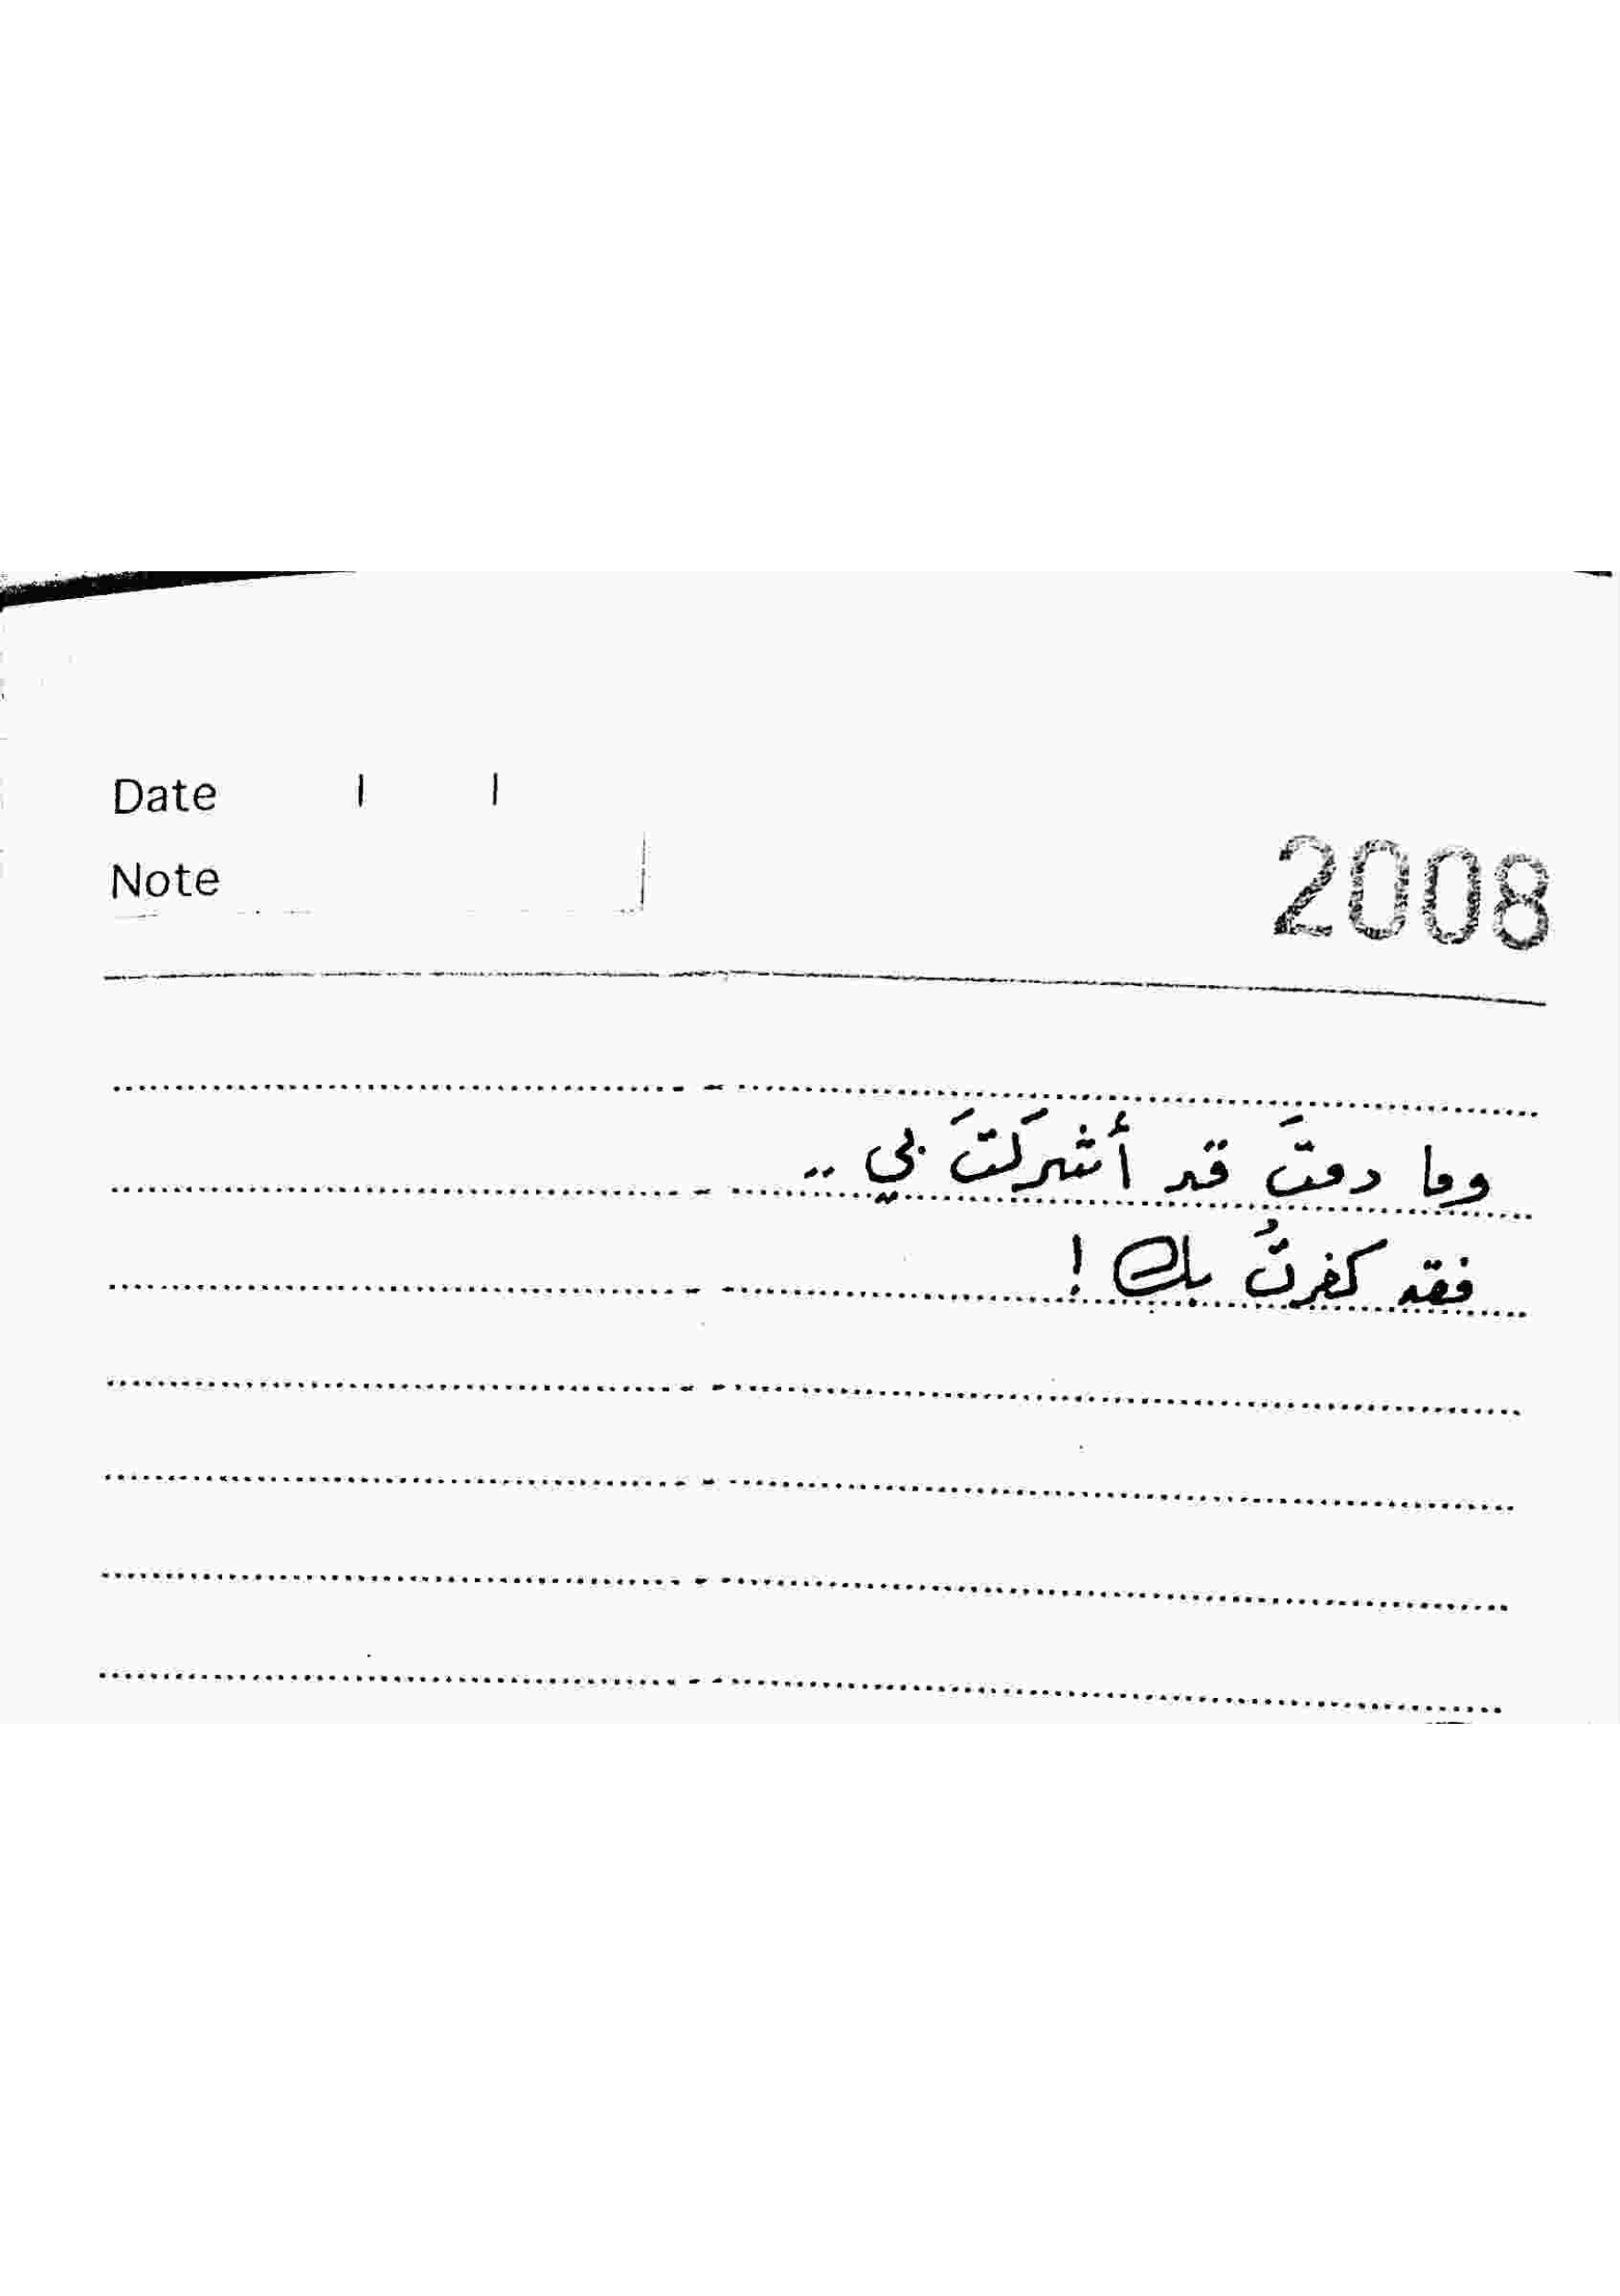 Date / /
Note
2008
وما دمتَ قد أشركَتَ بي ..
فقد كفرتُ بك !